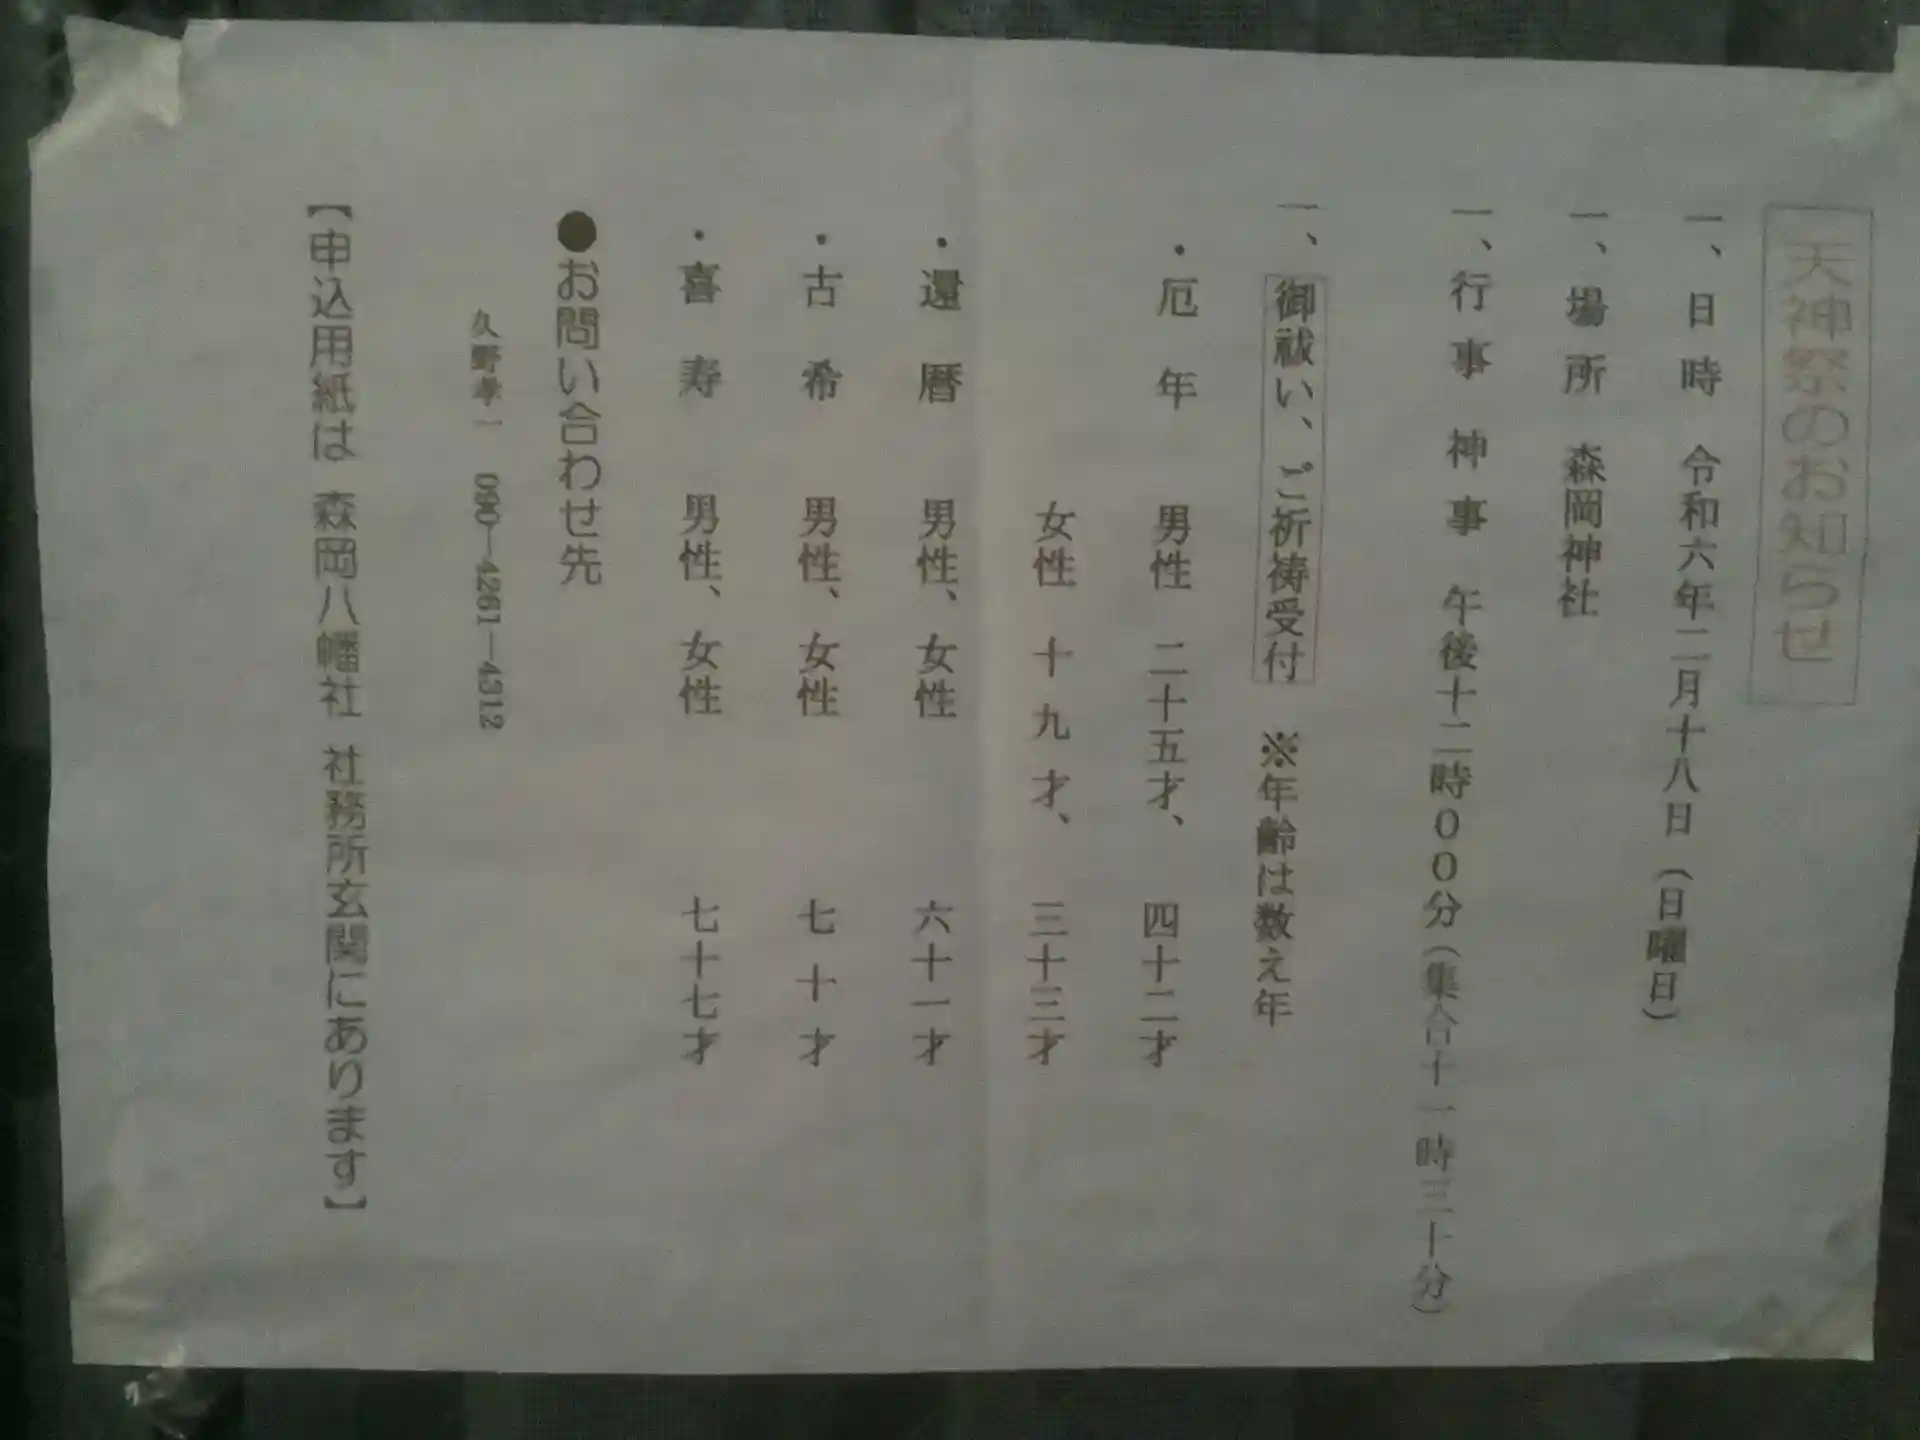 天神祭のお知らせ
一、日時 令和六年二月十八日(日曜日)
一、場所 森岡神社
一、行事 神事 午後十二時00分(集合十一時三十分)
一、御祓い、ご祈祷受付 ※年齢は数え年
・厄年 男性 二十五才、 四十二才
女性 十九才、 三十三才
・還暦 男性、女性 六十一才
・古希 男性、女性 七十才
・喜寿 男性、女性 七十七才
●お問い合わせ先
久野孝一 090-4261-4312
【申込用紙は 森岡八幡社 社務所玄関にあります】